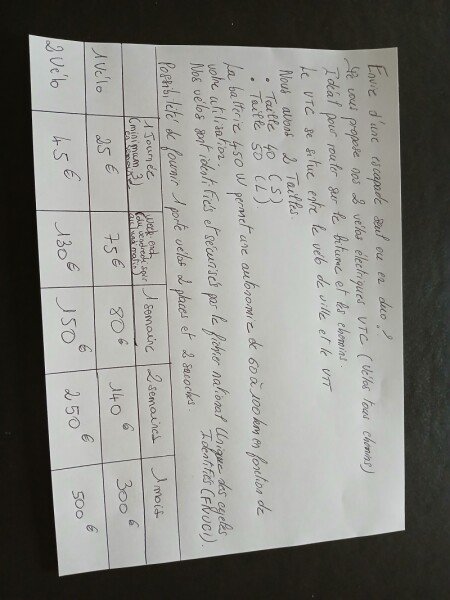 Envie d'une escapade seul ou en duo ?
Je vous propose nos 2 vélos électriques VTC (vélos tous chemins)
Idéal pour rouler sur le bitume et les chemins.
Le VTC se situe entre le vélo de ville et le VTT
Nous avons 2 Tailles
• Taille 40 (S)
• Taille 50 (L)
La batterie 450 W permet une autonomie de 60 à 100 km en fonction de
votre utilisation.
Nos vélos sont identifiés et sécurisés par le fichier national Unique des cycles
Identifiés (FNUCI).
Possibilité de fournir 1 porte vélos 2 places et 2 sacoches
1 Journée week end 1 semaine 2 semaines 1 mois
(minimum 2 (du vendredi soir
1 vélo 25€ 75€ 80€ 140€ 300€
2 vélo 45€ 130€ 150€ 250€ 500€